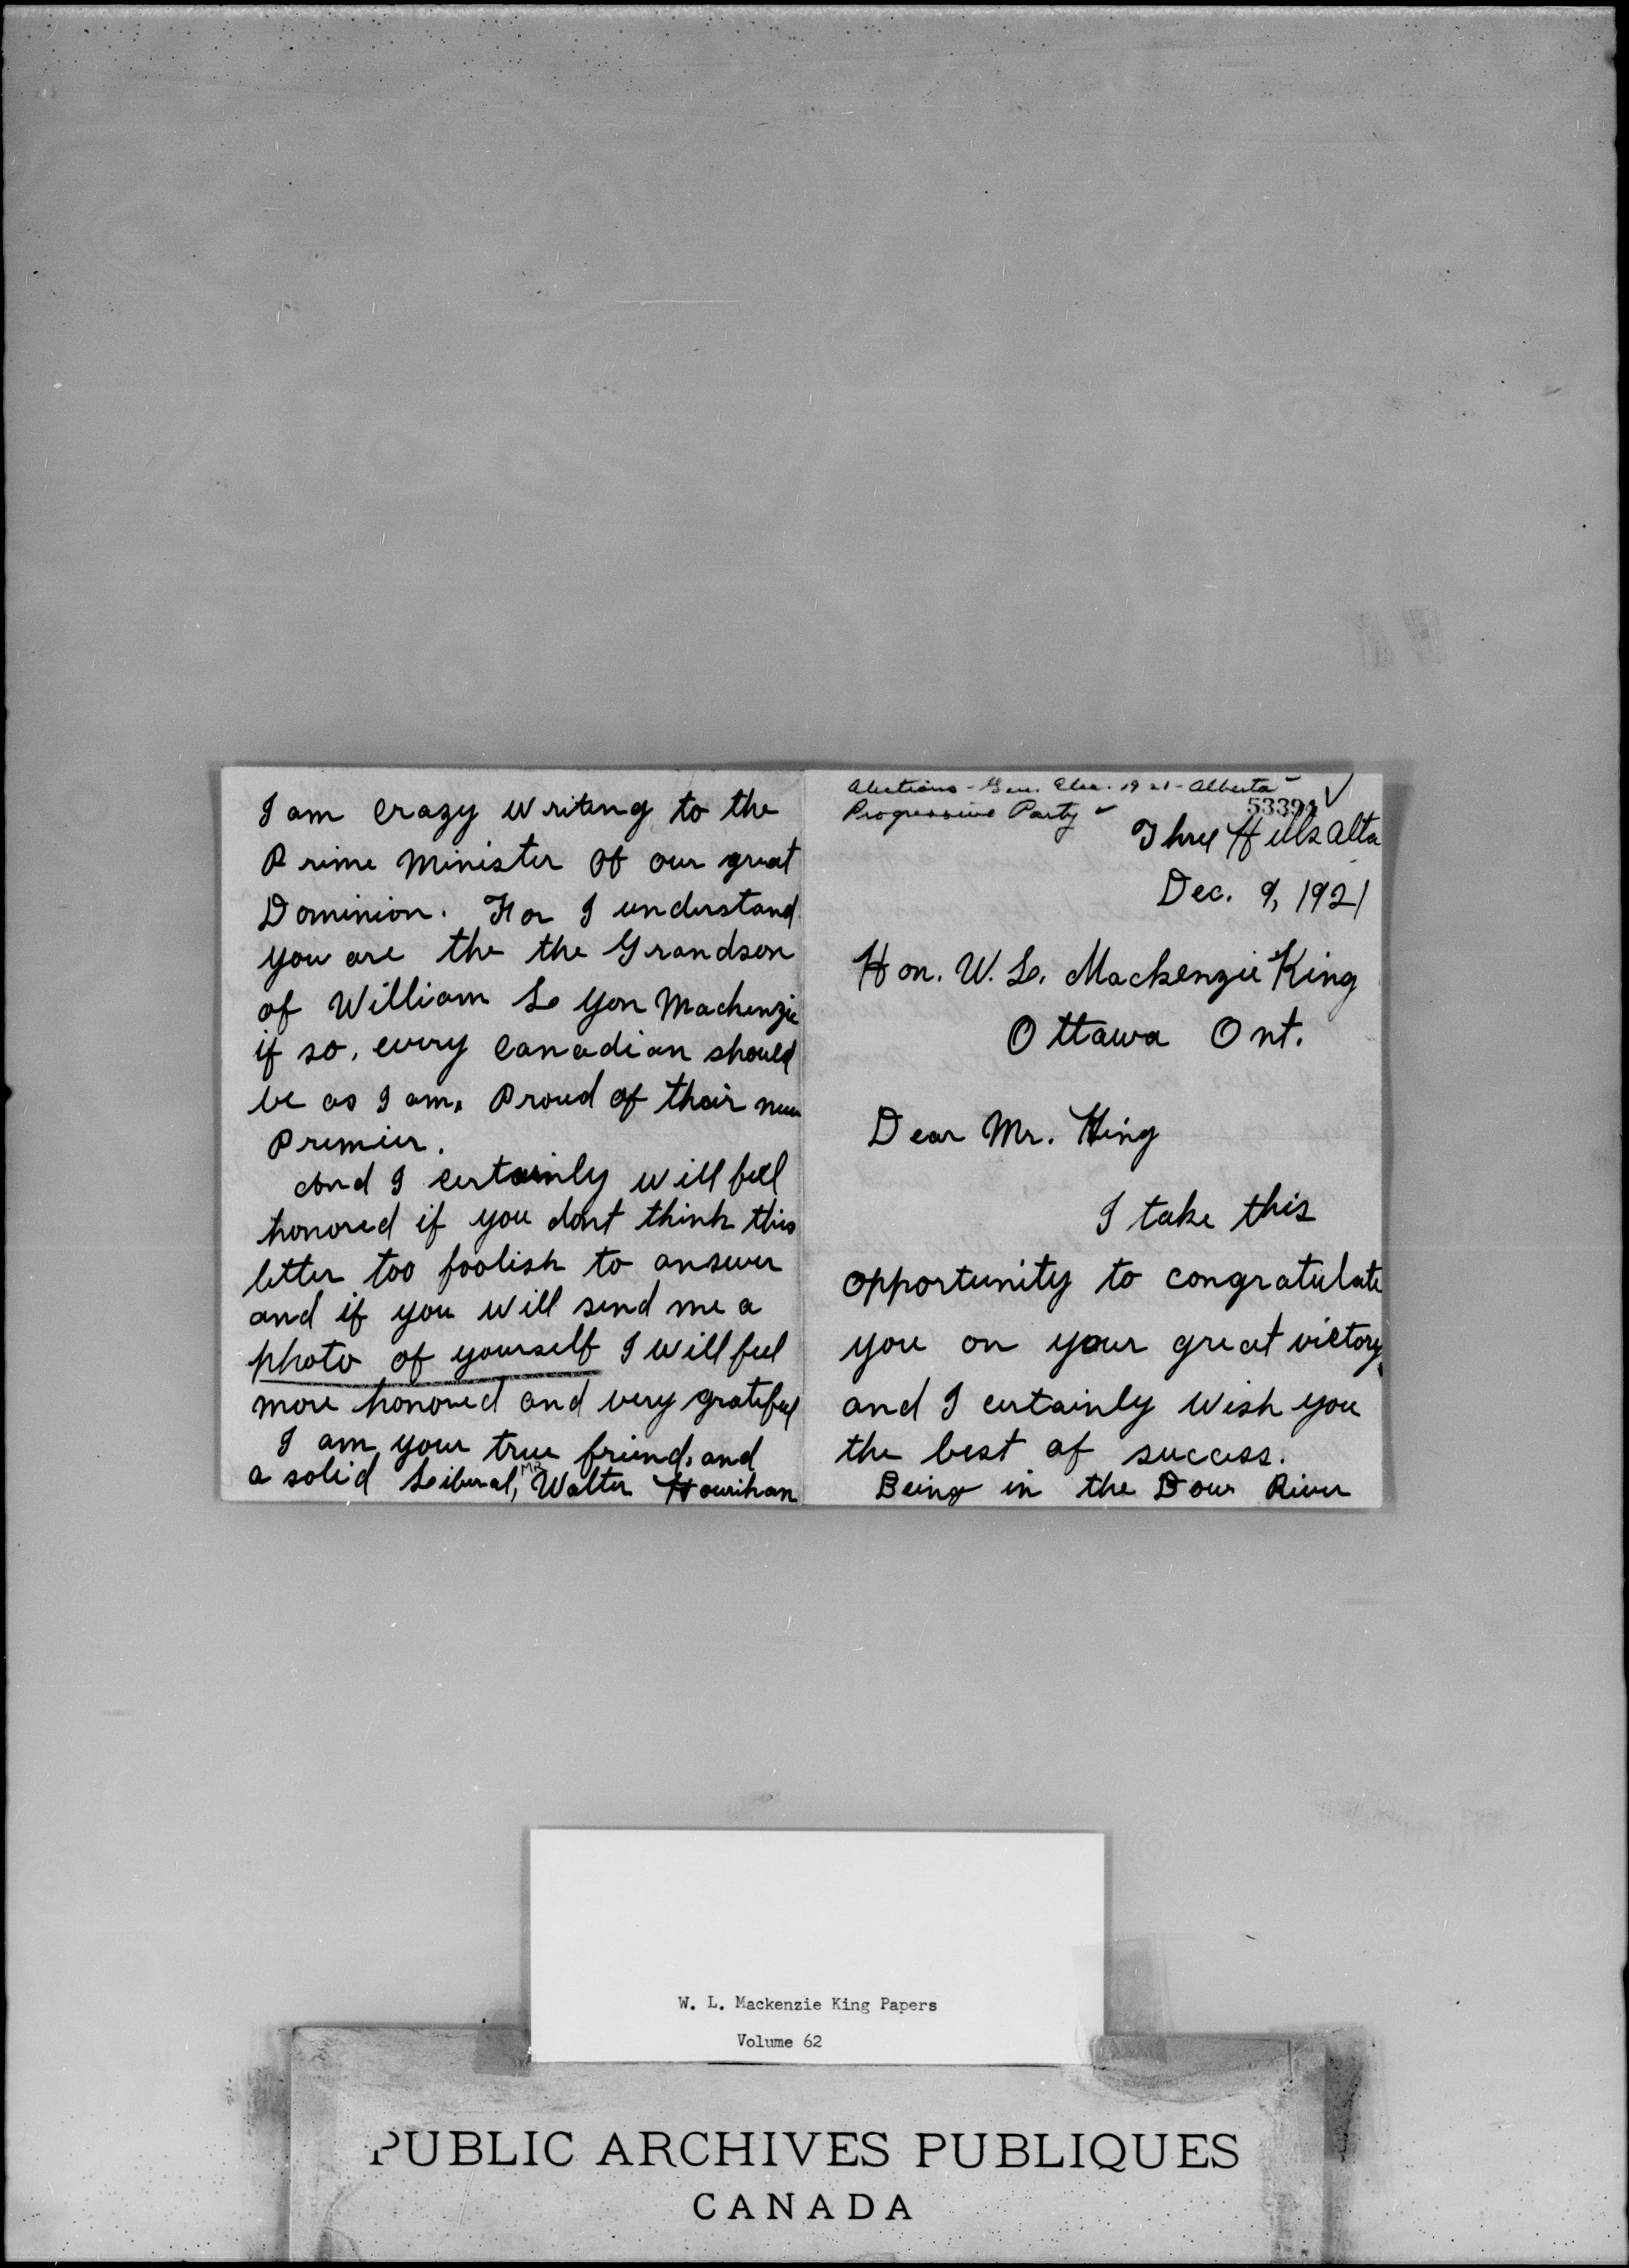 I am crazy writing to the
Prime Minister of our great
Dominion. For I understand
you are the the Grandson
of William Le Yon Mackenzie
if so, every Canadian should
be as I am, Proud of their new
Premier.
And I certainly will feel
honored if you dont think this
letter too foolish to answer
and if you will send me a
photo of yourself I will feel
more honored and very grateful
I am your true friend, and
a solid Liberal, Mr Walter Hourihan
Elections - Gen. Elec. 1921 - Alberta
Progressive Party
53394
Three Hills Alta
Dec. 9, 1921
Hon. W. L. Mackenzie King
Ottawa Ont.
Dear Mr. King
I take this
opportunity to congratulate
you on your great victory,
and I certainly wish you
the best of success.
Being in the Bow River
W. L. Mackenzie King Papers
Volume 62
PUBLIC ARCHIVES PUBLIQUES
CANADA